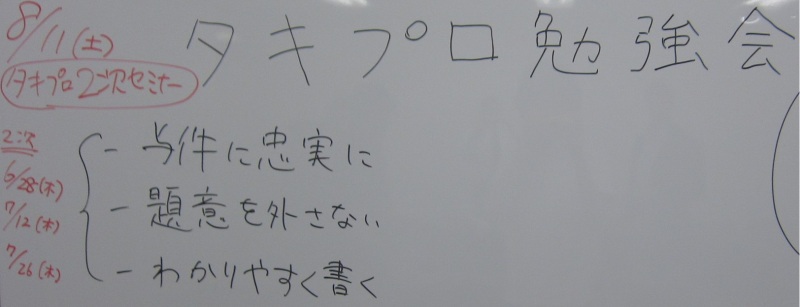 8/11(土)
タキプロ2次セミナー
タキプロ勉強会
2次
6/28(木)
7/12(木)
7/26(木)
- 与件に忠実に
- 題意を外さない
- わかりやすく書く